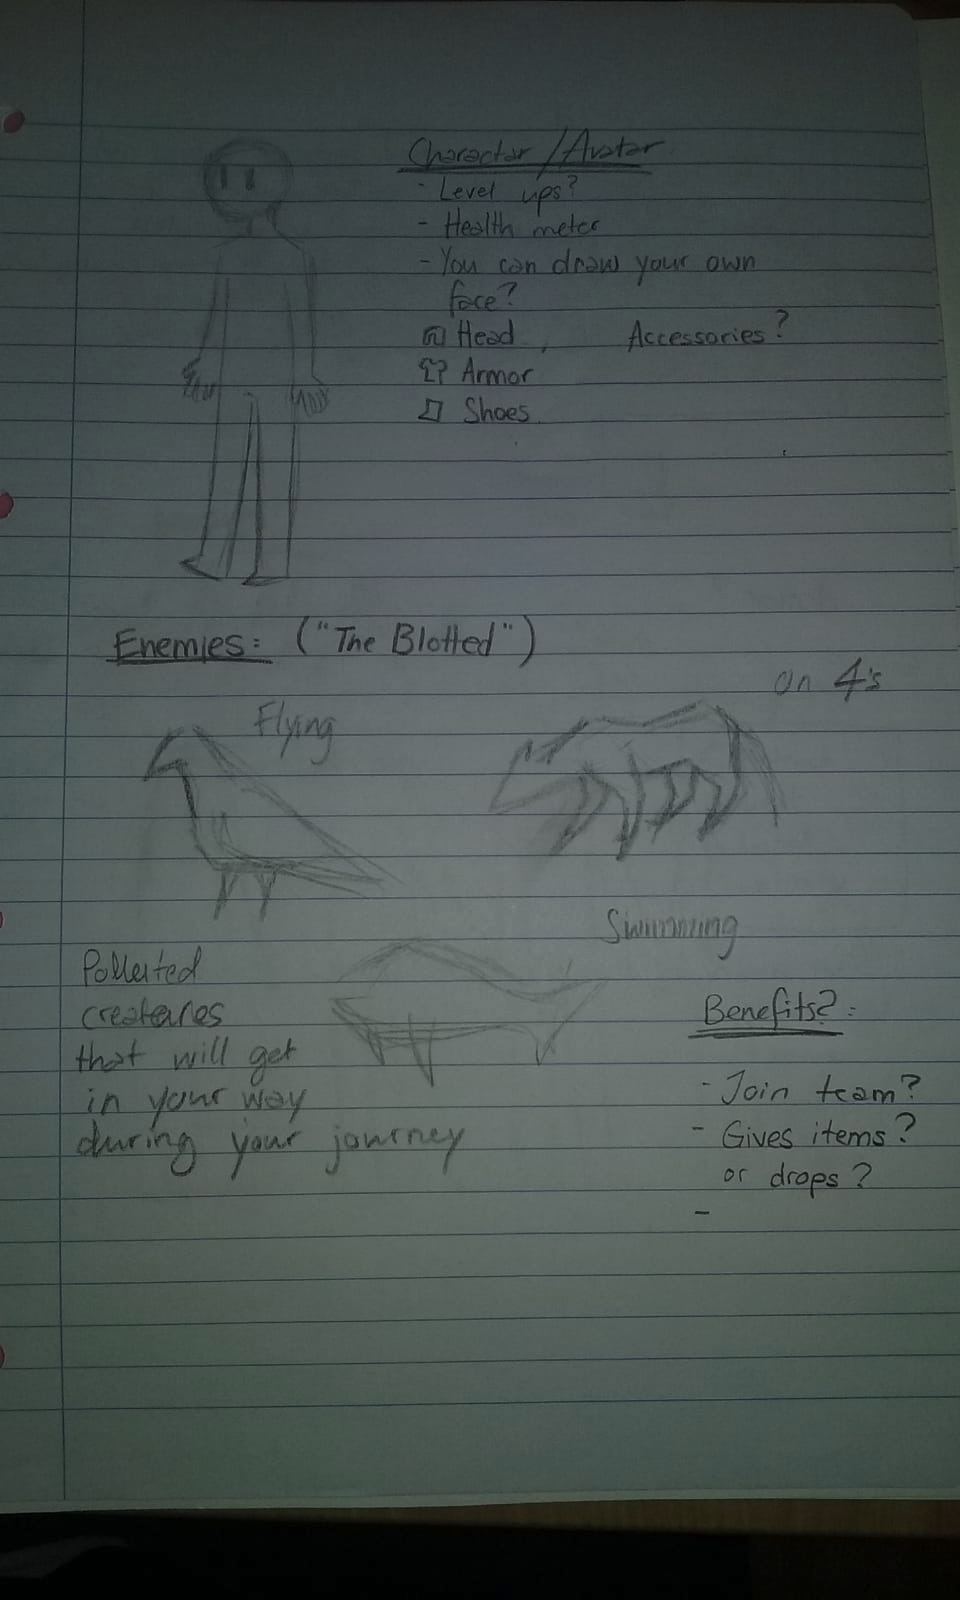 Charactor / Avatar
- Level ups?
- Health meter
- You can draw your own
face?
Head, Accessories?
Armor
Shoes
Enemies: ("The Blotted")
on 4's
Flying
Swimming
Polluted
creatures
that will get
in your way
during your journey
Benefits?:
- Join team?
- Gives items?
or drops?
-